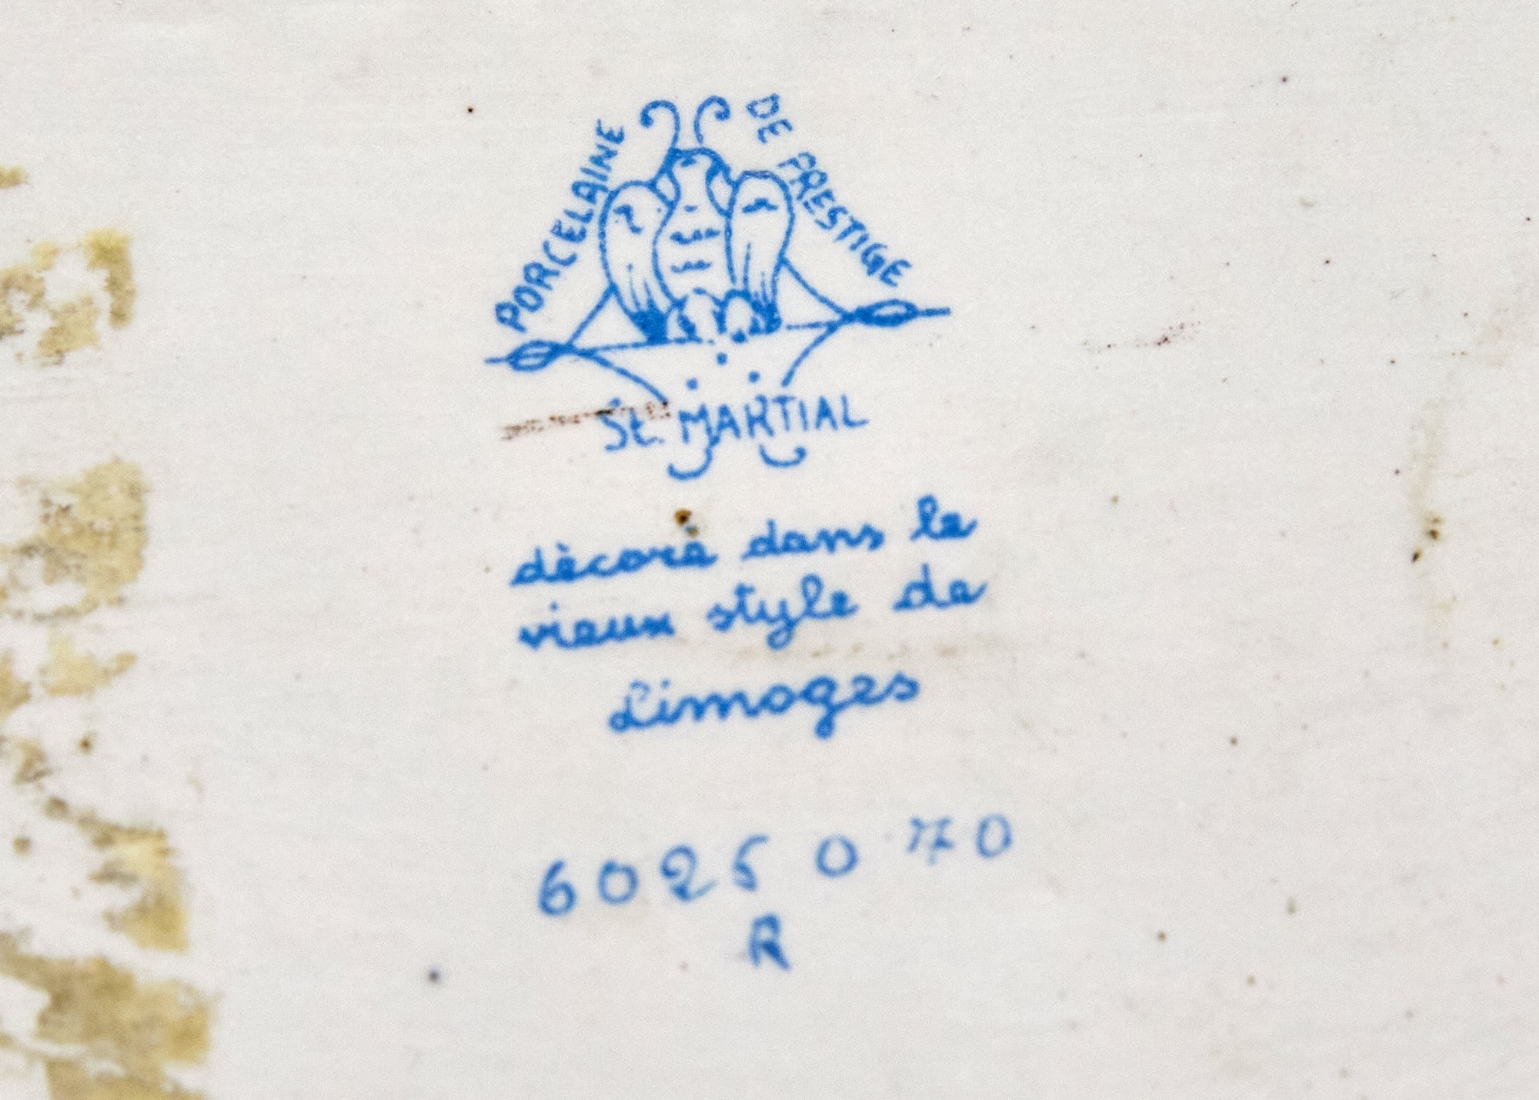 PORCELAINE DE PRESTIGE
St. MARTIAL
dècorè dans le
vieux style de
Limoges
6025 0 70
R